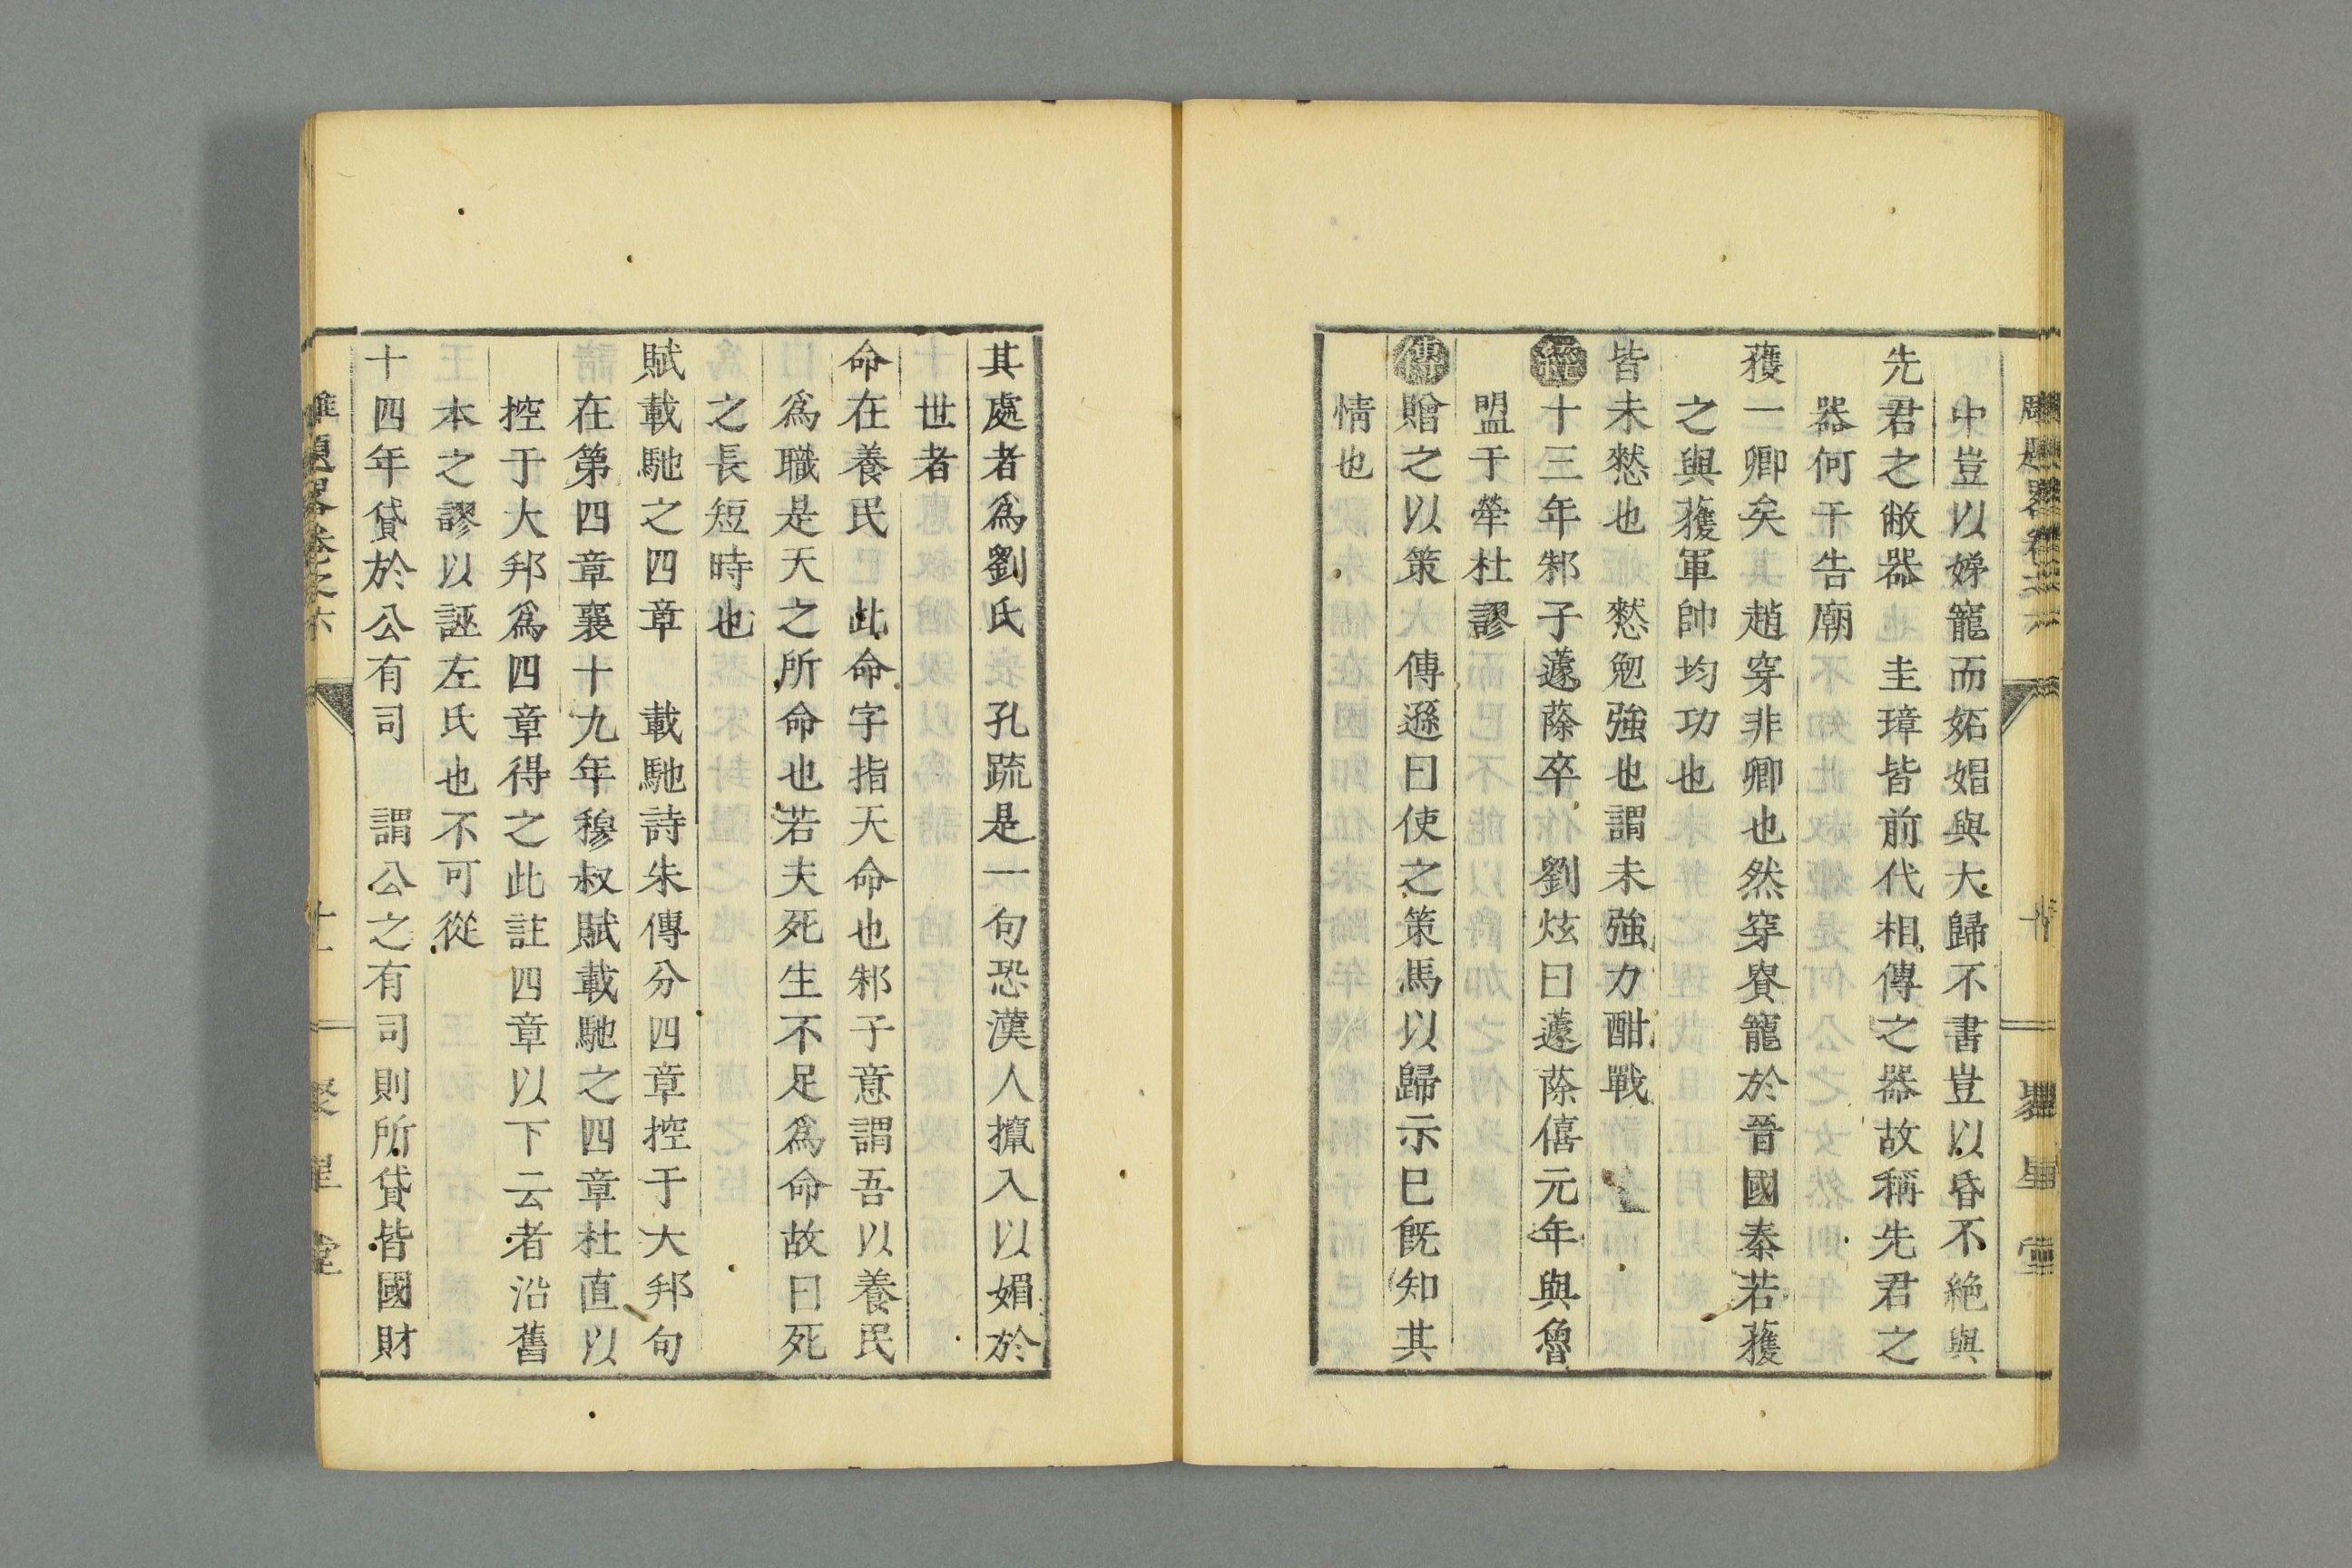 中豈以娣寵而妬娼與大歸不書豈以昏不絶與
先君之敝器　圭璋皆前代相傳之器故稱先君之
器何干告廟
獲一卿矣　趙穿非卿也然穿賓寵於晉國秦若獲
之與獲軍帥均功也
皆未憖也　憖勉強也謂未強力酣戰
經十三年邾子蘧蒢卒　劉炫曰蘧蒢僖元年與魯
盟于犖杜謬
傳贈之以策　傳遜曰使之策馬以歸示巳既知其
情也
其處者爲劉氏　孔疏是一句恐漢人攛入以媚於
世者
命在養民　此命字指天命也邾子意謂吾以養民
爲職是天之所命也若夫死生不足爲命故曰死
之長短時也
賦載馳之四章　載馳詩朱傳分四章控于大邦句
在第四章襄十九年穆叔賦載馳之四章杜直以
控于大邦爲四章得之此註四章以下云者沿舊
本之謬以誣左氏也不可從
十四年貸於公有司　謂公之有司則所貸皆國財
雕題畧卷之六
十一
聚星堂